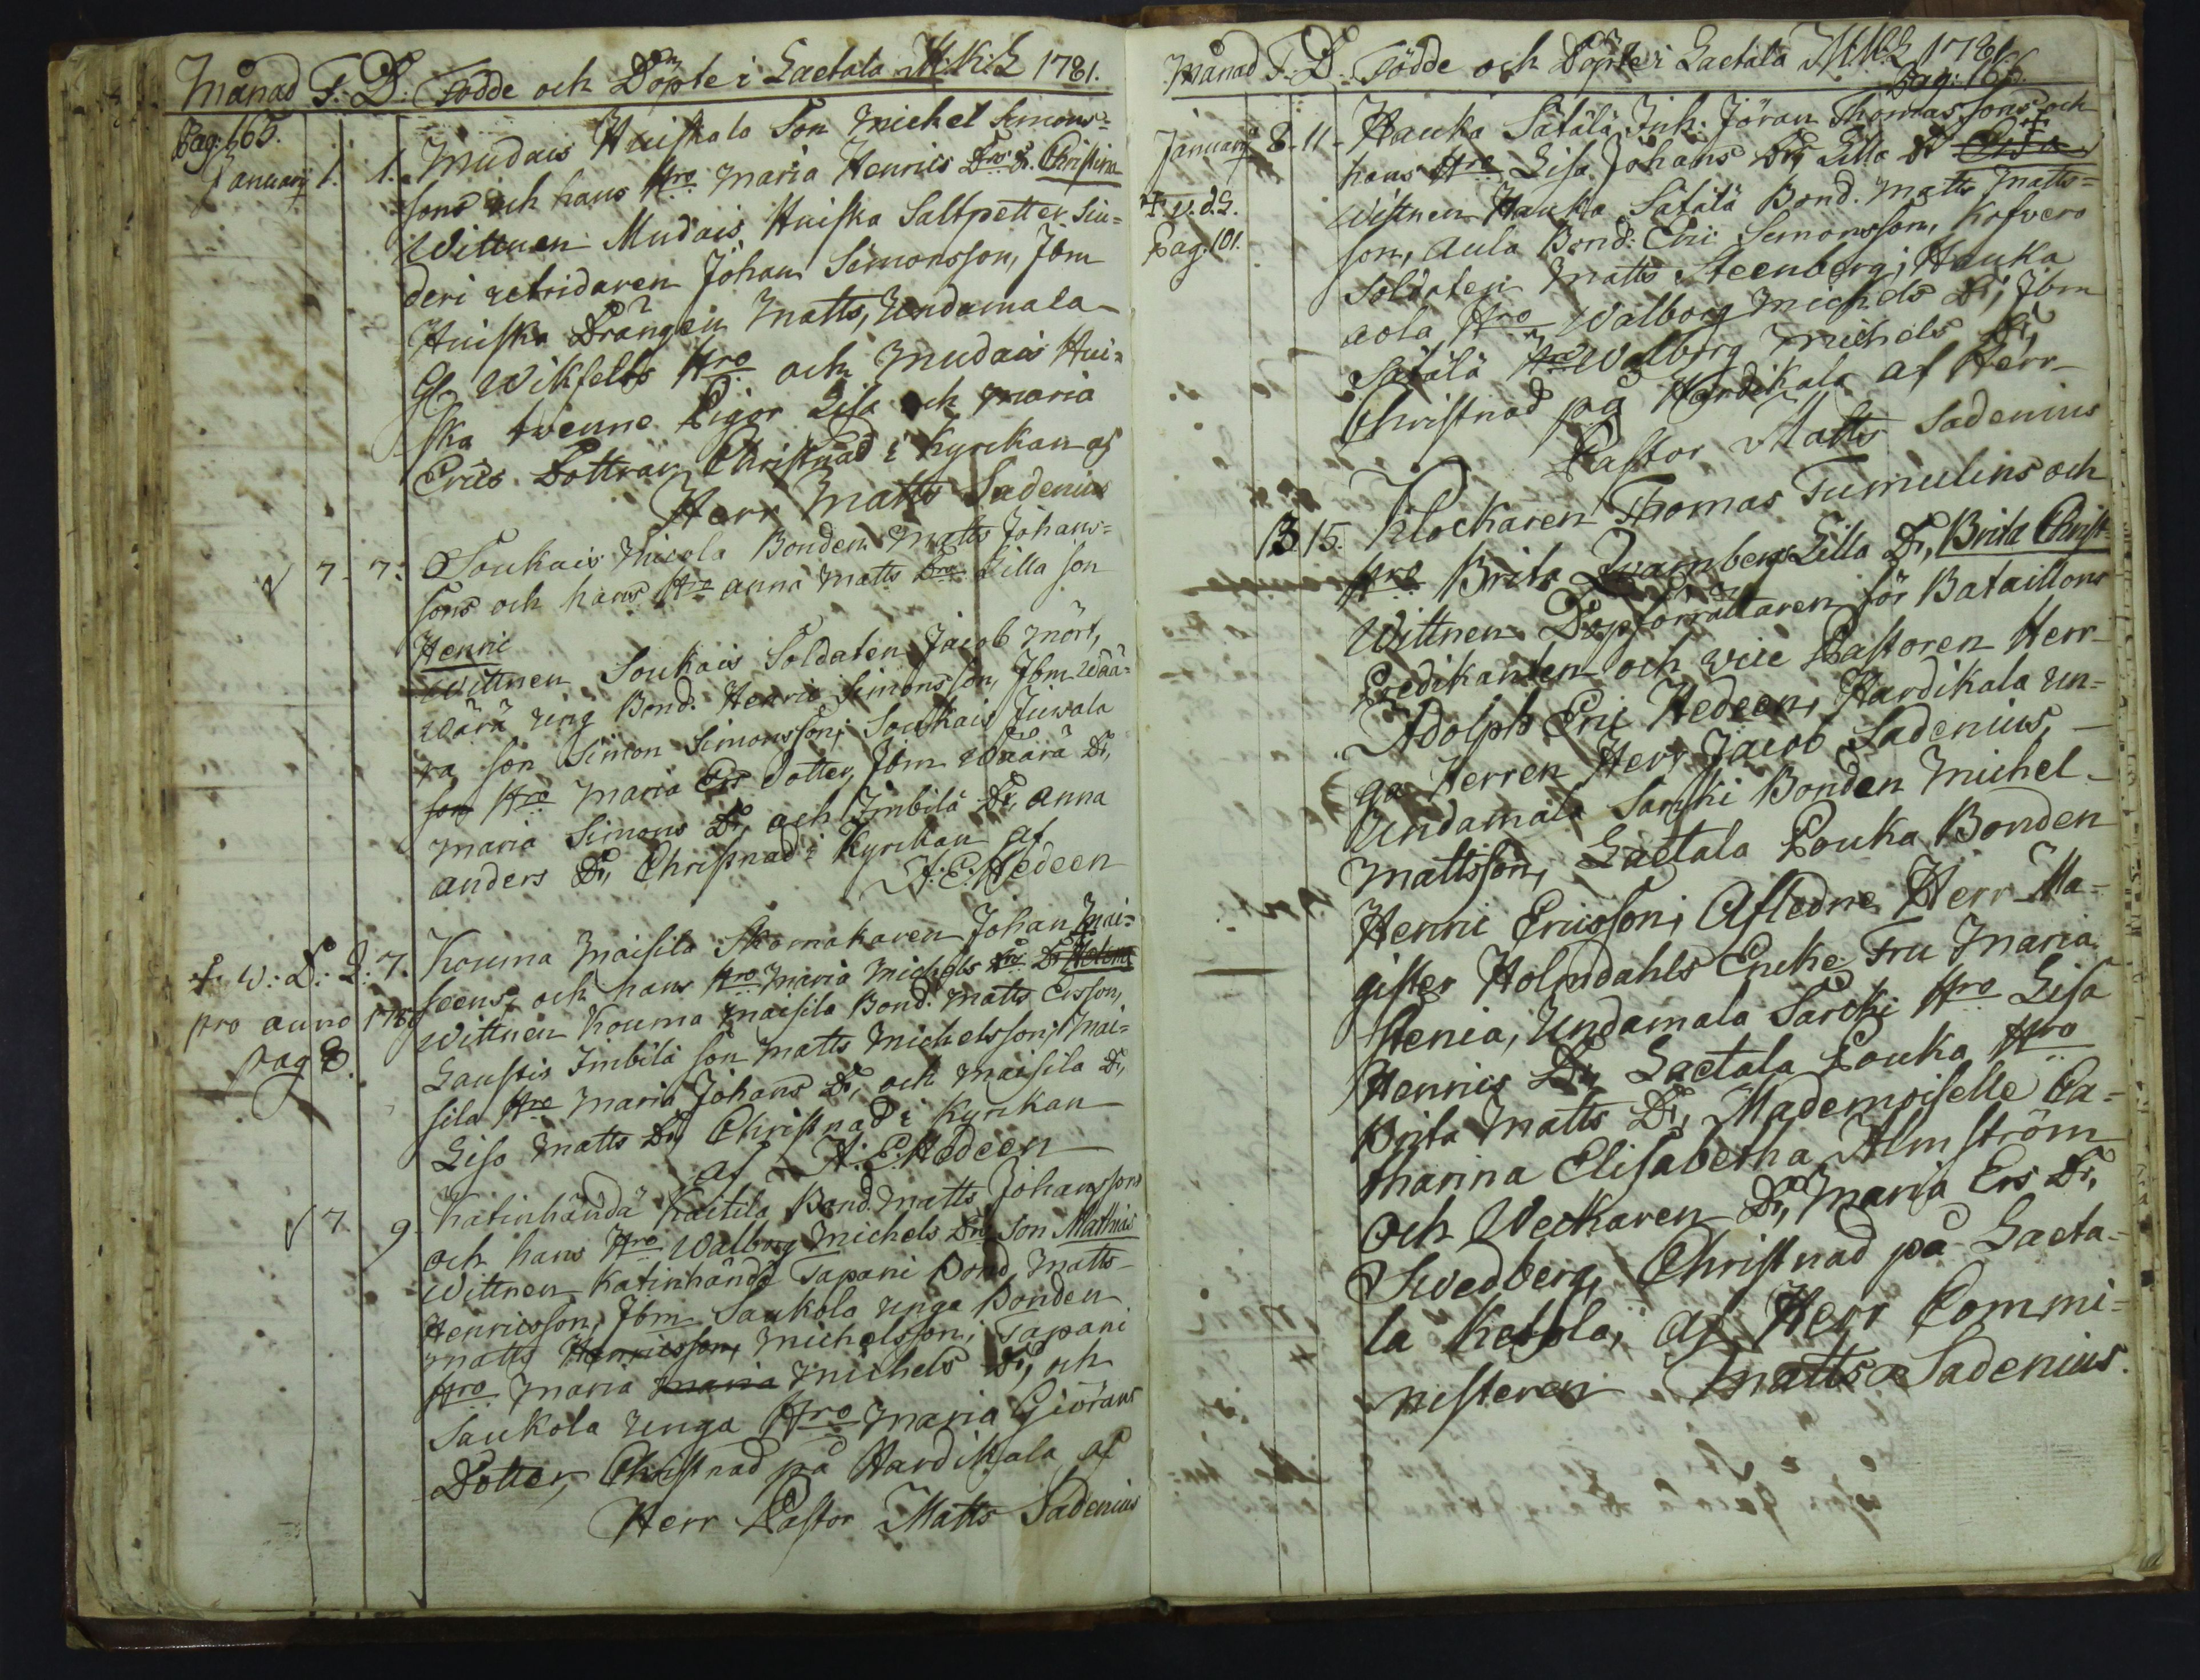 Månad F. D. Födde och Döpte i Laetala M.K.L 1781.
Pag: 165.
January 1. 1. Mudais Huiskala Son Michel Simons=
sons och hans Hro Maria Henrics Drs D. Christina
Wittnen Mudais Huiska Saltpetter Siu=
deri Johan Simonsson, Jbm
Huiska Drängein Matts, Undamala
Gl. Wikfelts Hro och Mudais Hui=
ska twenne Pigor Lisa och Maria
Erics Döttrar Christnad i Kyrckan af
Herr Matts Sadenius
7. 7. Soukais Bonden Matts Johans=
sons och hans Hro Anna Matts Drs Lilla son
Henric
Wittnen Soukais Soldaten Jacob Mört,
Wärä ung Bond. Henric Simonsson, Jbm Wää=
rä son Simon Simonsson; Soukais Juwala
son Hro Maria Ers Dotter, Jbm Wäärä Dr,
Maria Simons Dr, och Imbilä Dr, Anna
Anders Dr, Christnad i Kyrckan af
A: E: Hedeen
F. w: D: L: 7. Kouma Maisila Skomakaren Johan Mai=
pro anno 1780 seens, och hans Hro Maria Michels Drs Dr Helena
pag 8. Wittnen Kouma Maisila Bond. Matts Ersson,
Laustis Imbilä son Matts Michelsson; Mai=
sila Hro Maria Johans Dr, och Maisila Dr,
Lisa Matts Dr, Christnad i Kyrckan
af A: E: Hedeen
7 9. Katinhändä Kaitila Bond. Matts Johanssons
och hans Hro Walborg Michels Drs Son Mathias
Wittnen Katinhändä Tapani Bond Matts
Henricsson, Jbm Saukola unga Bonden
Matts Henricsson, Michelsson; Tapani
Hro Maria Maria Michels Dr, och
Saukola unga Hro Maria Giörans
Dotter, Christnad på Hardikala af
Herr Pastor Matts Sadenius
Månad F. D. Födde och Döpte i Laetala M.K.L 1781.
Pag: 166.
January 8. 11. Hauka Sätälä Inh: Jöran Thomassons och
hans Hro Lisa Johans Drs Lilla Dr
F. w. d. L. Wittnen Hauka Sätälä Bond. Matts Matts=
Pag. 101. son, Aula Bond: Eric Simonsson, Kofvero
Soldaten Matts Steenberg; Hauka
aola Hro Walborg Michels Dr; Jbm
Sätälä Hro Walborg Michels Dr,
Christnad på Hardikala af Herr
Pastor Matts Sadenius
13. 15. Klockaren Thomas Tumulins och
Hro Brita Lilla Dr, Brita Christ=
Wittnen Dopförrättaren för Bataillons
Predikanten och vice Pastoren Herr
Adolph Eric Hedeen, Hardikala un=
ga Herren Herr Jacob Sadenius,
Undamala Sarcki Bonden Michel
Mattsson, Laetala Pouka Bonden
Henric Ericsson; Afledne Herr Ma=
gister Holmdahls Encke Fru Maria
Stenia, Undamala Sarcki Hro Lisa
Henrics Dr, Laetala Pouka Hro
Brita Matts Dr, Mademoiselle Ca=
tharina Elisabetha Almström
och Weckaren Dr, Maria Ers Dr,
Swedberg, Christnad på Laeta=
la Ketola, af Herr Commi=
nisteren Matts Sadenius.